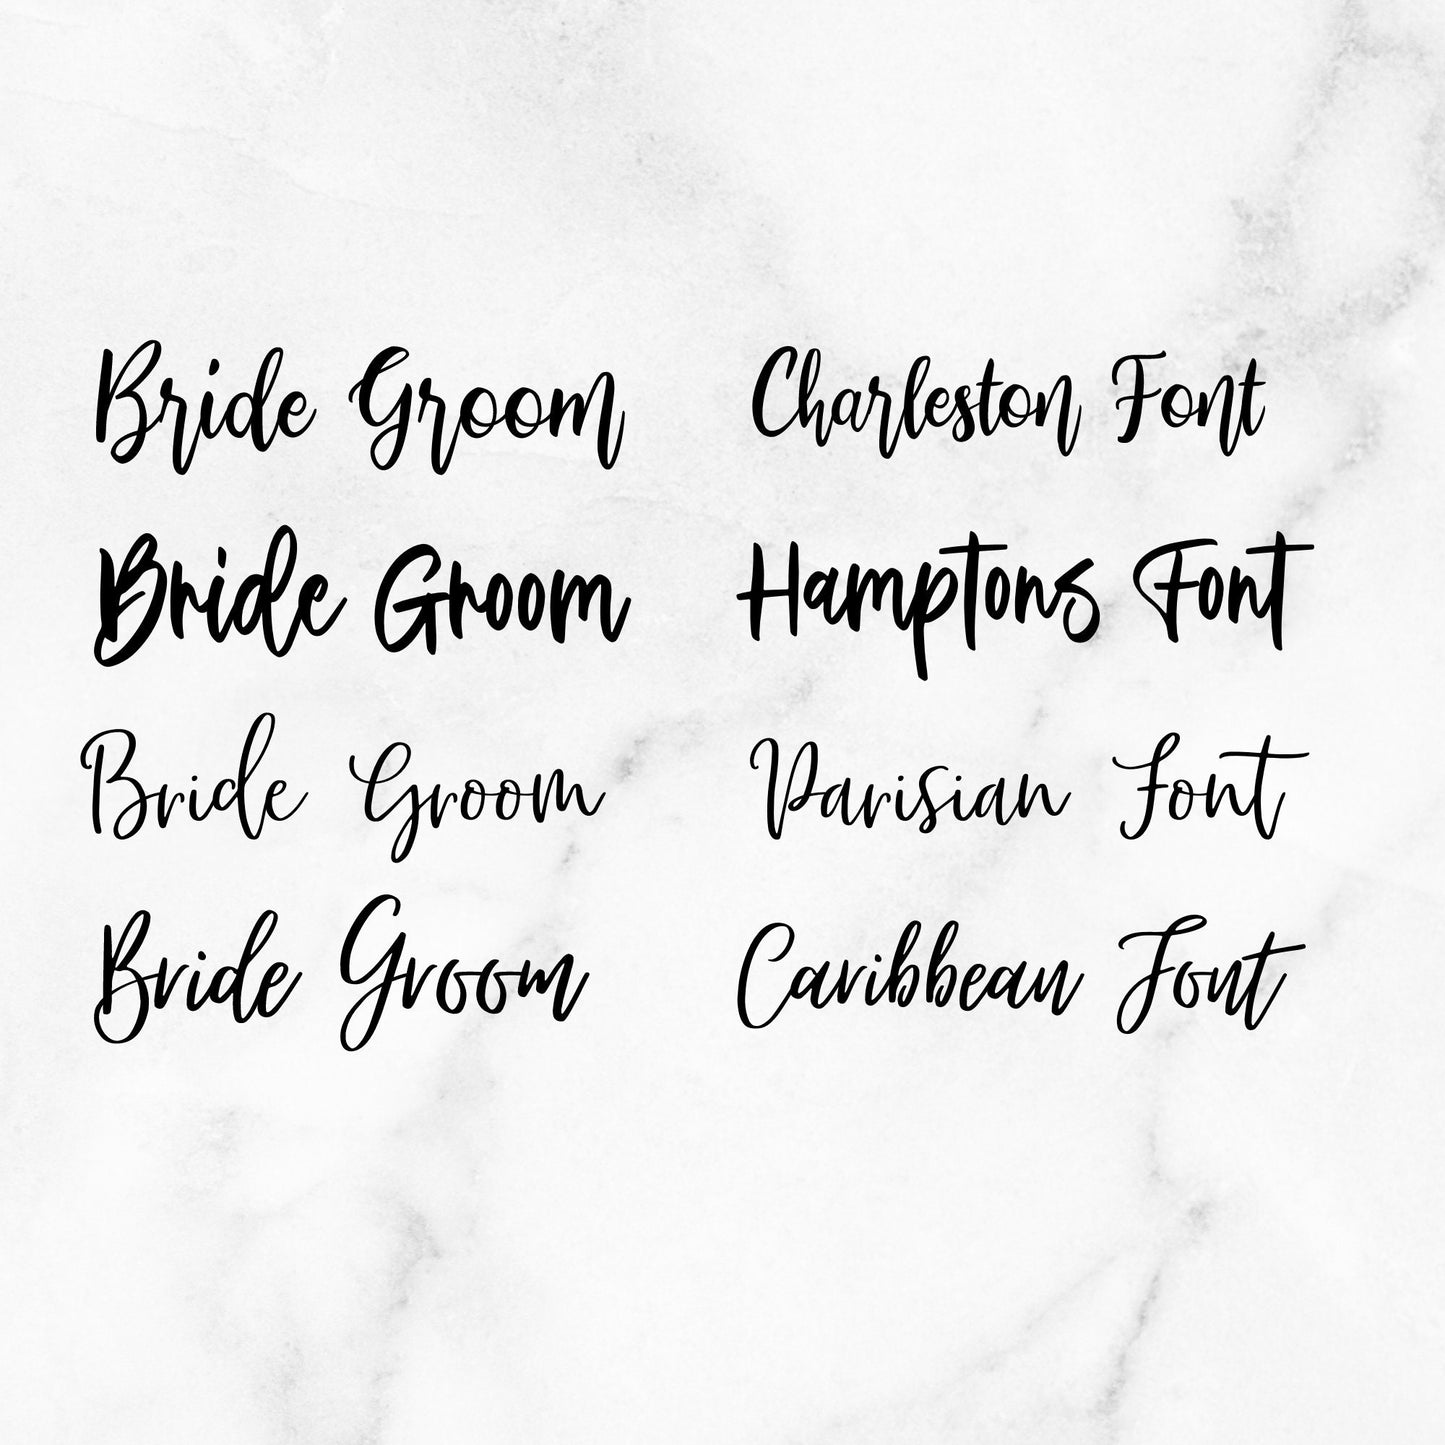 Bride Groom Charleston Font
Bride Groom Hamptons Font
Bride Groom Parisian Font
Bride Groom Caribbean Font